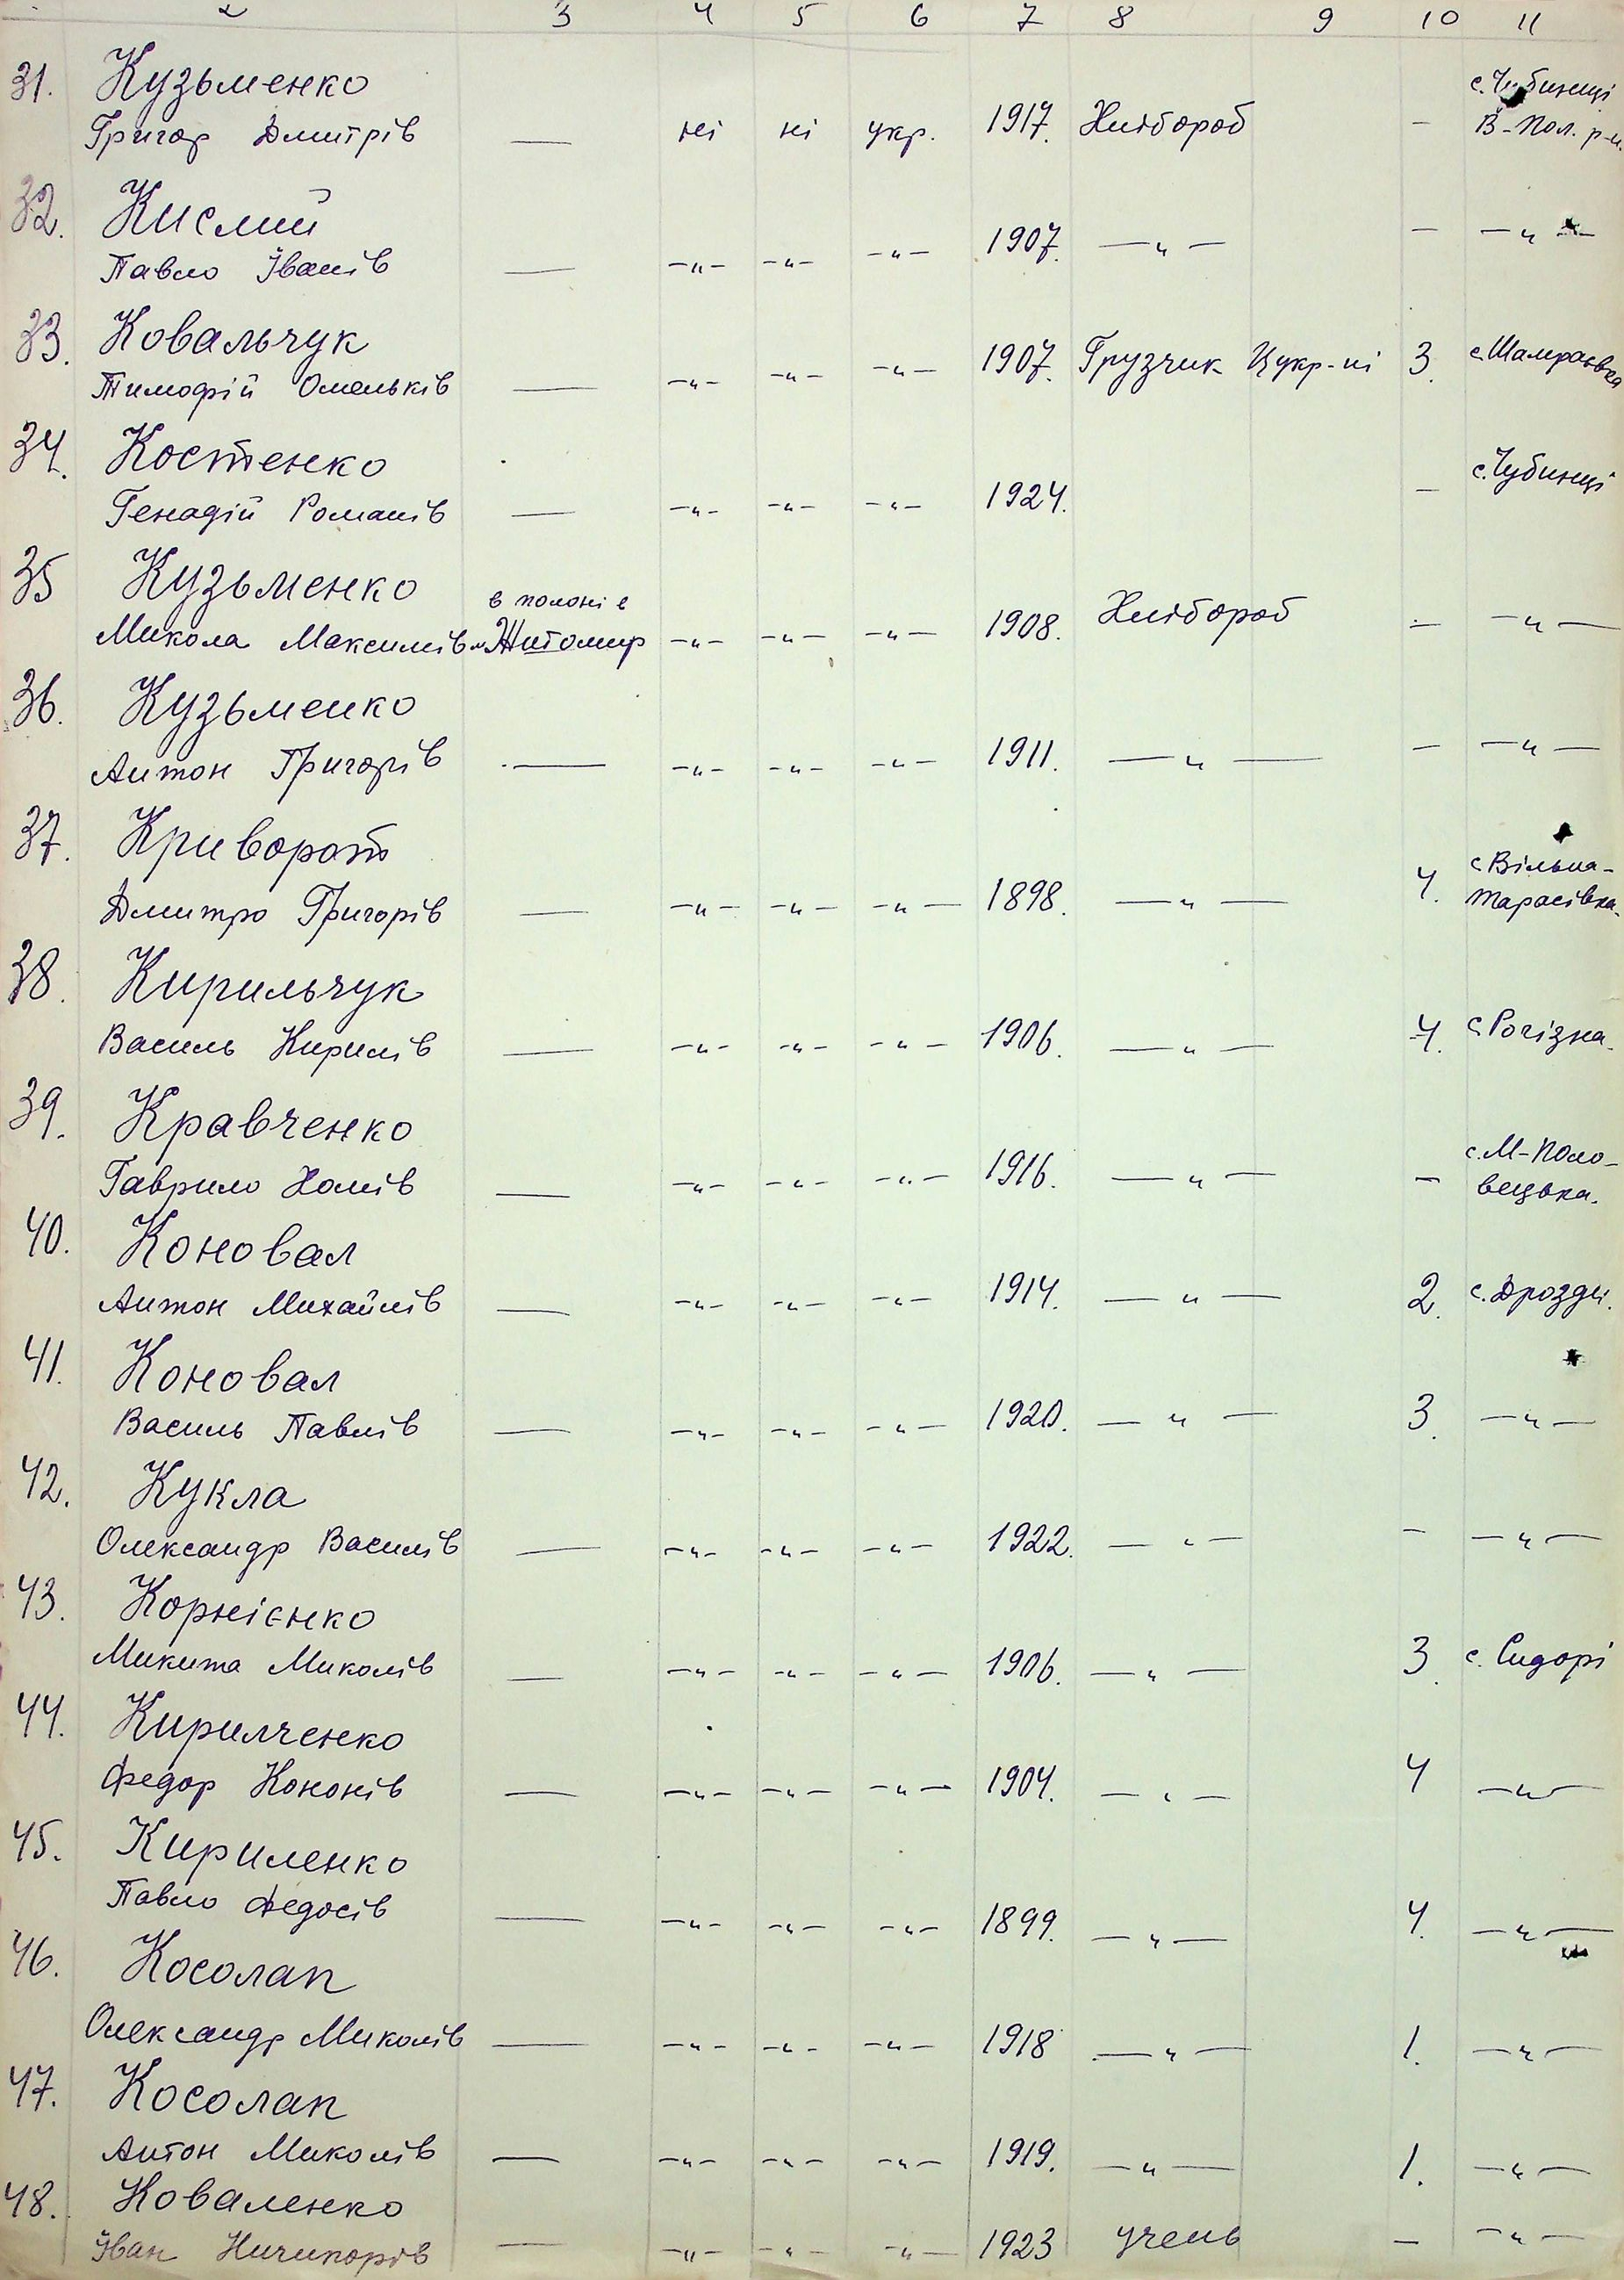 2 3 4 5 6 7 8 9 10 11
31. Кузьменко с. Чубинці
Григор Дмитрів — ні ні укр. 1917. Хлібороб - В-Пол. р-н.
32. Кислий
Павло Іванів — -"- -"- -"- 1907. -"- - -"-
33. Ковальчук
Тимофій Омельків — -"- -"- -"- 1907. Грузчик Цукр-ні 3. с. Шамраєвка
34. Костенко с. Чубинці
Генадій Романів — -"- -"- -"- 1924. -
35 Кузьменко в полоні в
Микола Максимів м. Житомир -"- -"- -"- 1908. Хлібороб - -"-
36. Кузьменко
Антон Григорів — -"- -"- -"- 1911. -"- - -"-
37. Криворот с. Вільна-
Дмитро Григорів — -"- -"- -"- 1898. -"- 4. Тарасівка.
38. Кирильчук
Василь Кирилів — -"- -"- -"- 1906. -"- 4. с. Рогізна.
39. Кравченко с. М-Поло-
Гаврило Хомів — -"- -"- -"- 1916. -"- - вецька.
40. Коновал
Антон Михайлів — -"- -"- -"- 1914. -"- 2. с. Дрозди.
41. Коновал
Василь Павлів — -"- -"- -"- 1920. -"- 3. -"-
42. Кукла
Олександр Василів — -"- -"- -"- 1922. -"- - -"-
43. Корнієнко
Микита Миколів — -"- -"- -"- 1906. -"- 3. с. Сидорі
44. Кирилченко
Федор Кононів — -"- -"- -"- 1904. -"- 4 -"-
45. Кириленко
Павло Федосів — -"- -"- -"- 1899. -"- 4. -"-
46. Косолап
Олександр Миколів — -"- -"- -"- 1918 -"- 1. -"-
47. Косолап
Антон Миколів — -"- -"- -"- 1919. -"- 1. -"-
48. Коваленко
Іван Ничипорів — -"- -"- -"- 1923 учень - -"-